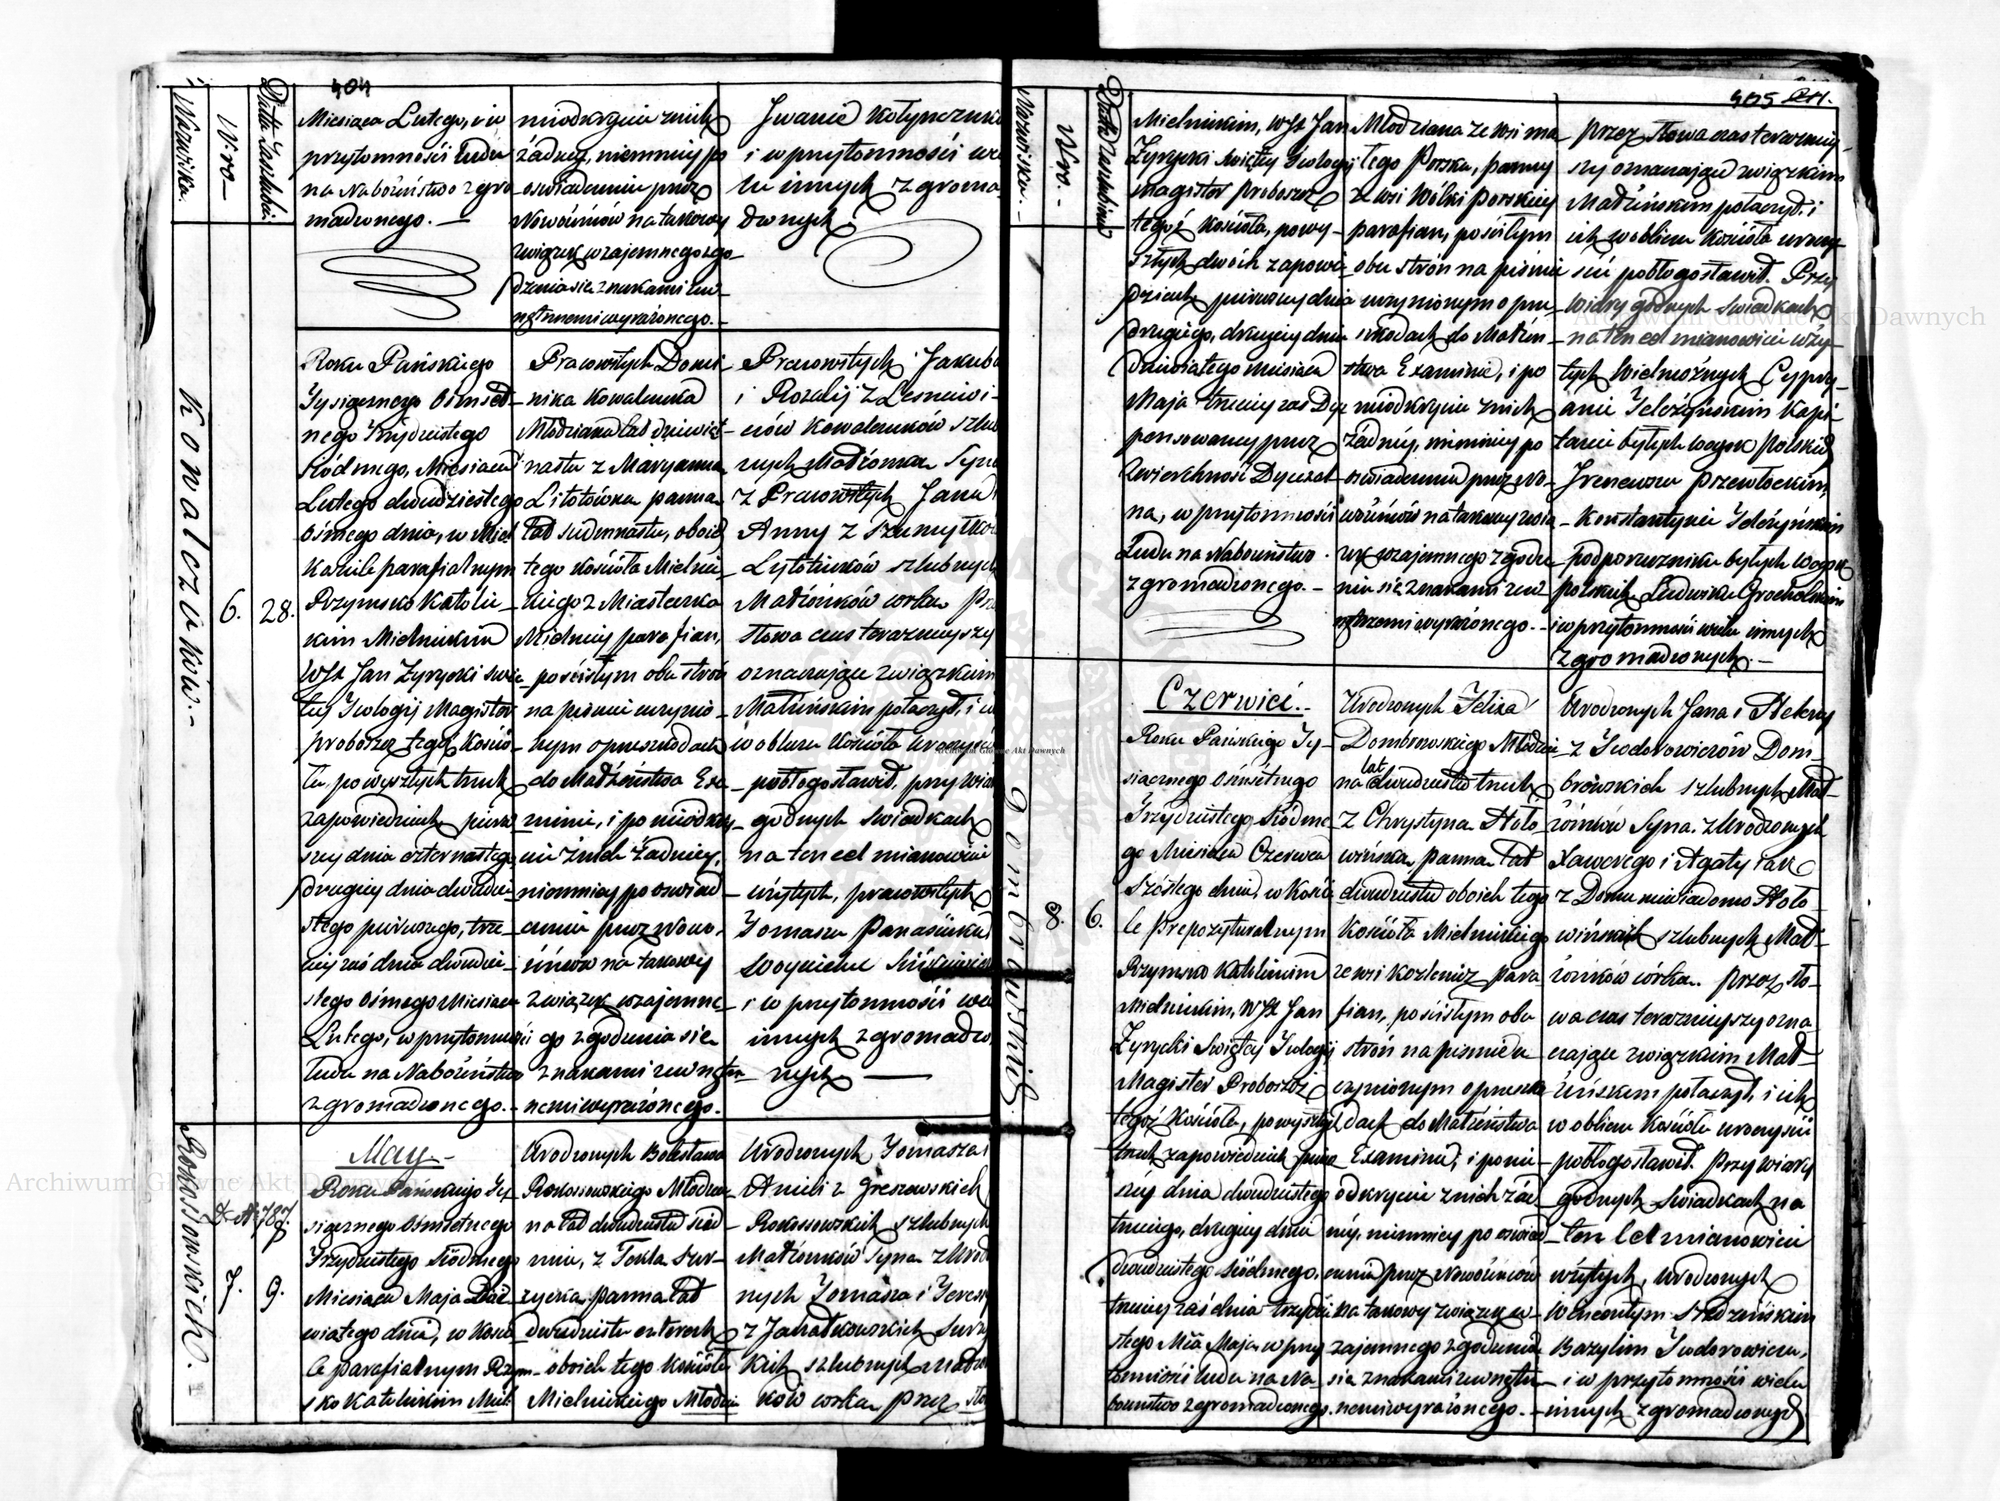 404
Nazwiska.
Nro
Datta zaszłubin.
Miesiąca Lutego, i w
przytomności ludu
na Nabożeństwo zgro
madzonego. —
nieodkryciu z nich
żadney, niemniey po
oświadczeniu przez
Nowożeńców na takowy
związek wzajemnego zgo
dzenia się znakami zew
nętrznemi wyrażonego. —
Iwanie
i w przytomności
lu innych zgroma
dzonych.
Kowalczuków. —
6.
28.
Roku Pańskiego
Tysiącznego Ośmset
nego Trzydziestego
Siódmego, Miesiąca
Lutego dwudziestego
Ośmego dnia, w Miel
Kościele parafialnym
Rzymsko Katolic
kim Mielnickim
WJX Jan Zyrycki Swię
tey Teologij Magister
proboszcz tegoż Kościo
ła, po wyszłych trzech
zapowiedziach pierw
szey dnia czternastego
drugiey dnia dwudzie
stego pierwszego, trze
ciey zaś dnia dwudzie
stego Ośmego Miesiąca
Lutego, w przytomności
ludu na Nabożeństwo
zgromadzonego. —
Pracowitych Domi
nika Kowalczuka
Młodziana lat dziewięt
nastu z Maryanną
Litotówką panną
lat siedmnastu, oboie
tego Kościoła Mielnic
kiego z Miasteczka
Mielnicy parafian,
po ścisłym obu stron
na piśmie uczynio
nym o przeszkodach
do Małżeństwa Exa
minie, i po nieodkry
ciu z nich żadney,
niemniey po oświad
czeniu przez Nowo
żeńców na takowy
związek wzajemne
go zgodzenia się
znakami zewnętrz
nemi wyrażonego. —
Pracowitych Jakuba
i Rozalij z Lesniewi
czów Kowalczuków szlub
nych Małżonków Syna
z Pracowitych Jana i
Anny z
Lytotiuków szlubnych
Małżonków córką Prz
słowa czas teraznieyszy
oznaczające związkiem
Małżeńskim połączył, i
w obliczu Kościoła uroczyście
pobłogosławił, przy wia
godnych Swiadkach
na ten cel mianowicie
wziętych, pracowitych
Tomaszu Panasiuku
Woyciechu
i w przytomności
innych zgromadzo
nych —
Rokossowskich.
7.
9.
May —
Roku Pańskiego Ty
siącznego Ośmsetnego
Trzydziestego Siódmego
Miesiąca Maja Dzie
wiątego dnia, w Kości
le parafialnym Rzym
sko Katolickim Miel
Urodzonych Bolesława
Rokossowskiego Młodzia
na lat dwudziestu sied
miu, z Teklą Surzycką panną lat
dwudziestu czterech
oboich tego Kościoła
Mielnickiego Młodzia
Urodzonych Tomasza i
Anieli z Greszewskich
Rokossowskich szlubnych
Małżonków Syna z Urod
nych Tomasza i Teressy
z Jakatkowskich Surzyc
kich szlubnych małżon
ków córką przez sło
405
Nazwiska. —
Nro. —
Datta zaszlubin
Mielnickim, WJX Jan
Zyrycki Swiętey Teologij
magister proboszcz
tegoż Kościoła, po wy
szłych dwóch zapowie
dziach pierwszey dnia
drugiego, drugiey dnia
dziewiątego miesiąca
Maja trzeciey zaś Dys
pensowaney przez
Zwierzchność Dyecezal
ną, w przytomności
Ludu na Nabożeństwo
zgromadzonego. —
Młodziana ze wsi ma
łego Porska, panny
z wsi Wólki Porskiey
parafian, po ścisłym
obu stron na piśmie
uczynionym o prze
szkodach do Małżeń
stwa Examinie, i po
nieodkryciu z nich
żadney, niemniey po
oświadczeniu przez No
wożeńców na takowy zwią
zek wzajemnego zgodze
nia się znakami zew
nętrznemi wyrażonego. —
przez słowa czas teraznie
szy oznaczające związkiem
Małżeńskim połączył i
ich w obliczu Kościoła uroczy
ście pobłogosławił. Przy
wiary godnych Swiadkach
na ten cel mianowicie wzię
tych Wielmożnych Cypry
anie Teleżyńskim Kapi
tanie byłych woysk Polskich
Ireneuszu Przewłockim,
Konstantym Teleżyńskim
podporuczniku byłych Woysk
polskich Ludwiku Grocholskim
i w przytomności wielu innych
zgromadzonych. —
Dombrowskich.
8.
6.
Czerwiec. —
Roku Pańskiego Ty
siącznego Ośmsetnego
Trzydziestego Siódme
go Miesiąca Czerwca
Szóstego dnia, w Kości
le Prepozyturalnym
Rzymsko Katolickim
Mielnickim, WJX Jan
Zyrycki Swiętey Teologij
Magister Proboszcz
tegoż Kościoła, po wyszłych
trzech zapowiedziach pierw
szey dnia dwudziestego
trzeciego, drugiey dnia
dwudziestego siódmego,
trzeciey zaś dnia trzydzie
stego Mca Maja w przy
tomności ludu na Na
bożeństwo zgromadzonego.
Urodzonych Felixa
Dombrowskiego Młodzia
na lat dwudziestu trzech
z Chrystyną Hoło
wińską, panną lat
dwudziestu oboich tego
Kościoła Mielnickiego
ze wsi Kozlenicz para
fian, po ścisłym obu
stron na piśmie u
czynionym o przeszko
dach do Małżeństwa
Examinie, i po nie
odkryciu z nich żad
ney, niemniey po oświad
czeniu przez Nowożeńców
na takowy związek w
zajemnego zgodzenia
się znakami zewnętrz
nemi wyrażonego. —
Urodzonych Jana i Heleny
z Teodorowiczów Dom
browskich szlubnych Mał
żonków Syna. z Urodzonych
Xawerego i Agaty iak
z Domu niewiadomo Hoło
wińskich szlubnych Mał
żonków córką. przez sło
wa czas teraznieyszy ozna
czające związkiem Mał
żeńskim połączył, i ich
w obliczu Kościoła uroczyście
pobłogosławił. Przy wiary
godnych Swiadkach na
ten cel mianowicie
wziętych, Urodzonych
Wincentym
Bazylim Teodorowiczu,
i w przytomności wielu
innych zgromadzonych
Archiwum Główne Akt Dawnych
Archiwum Główne Akt Dawnych
Archiwum Główne Akt Dawnych